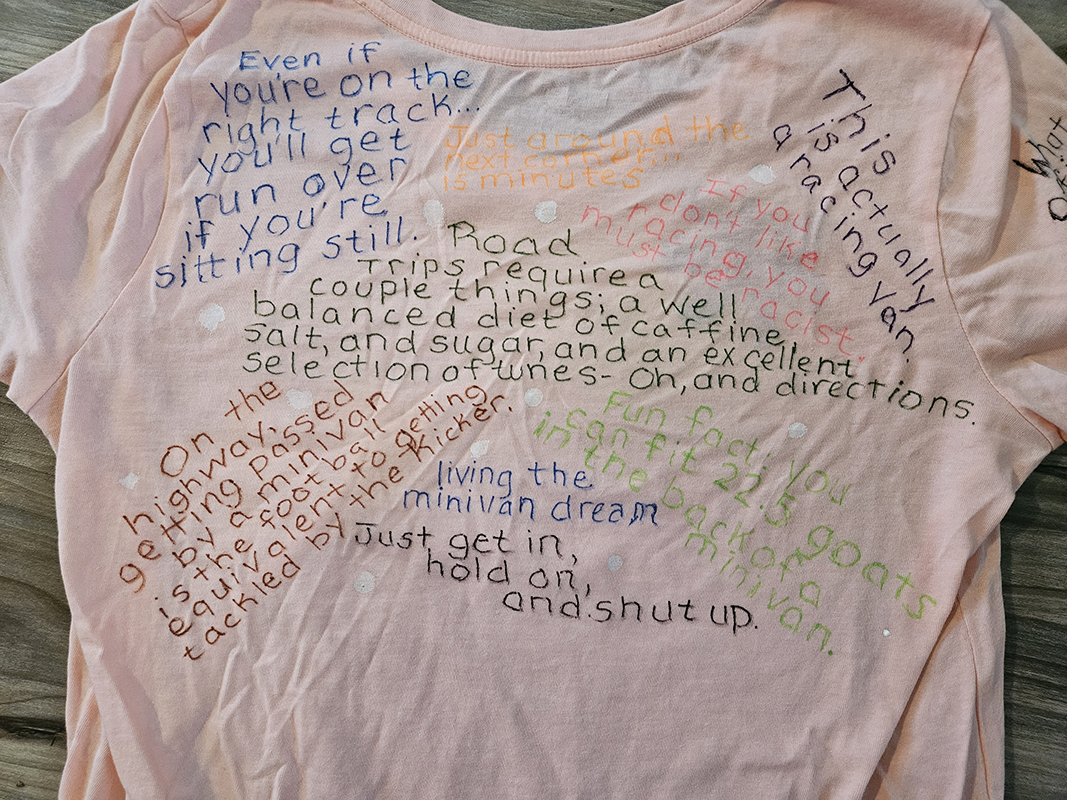 Even if
you're on the
right track...
you'll get
run over
if you're
sitting still.
Just around the
next corner...
15 minutes
If you
don't like
racing, you
must be racist.
This
is actually
a racing van.
What
Road
Trips require a
couple things; a well
balanced diet of caffine,
salt, and sugar, and an excellent
selection of tunes- Oh, and directions.
On the
highway, getting passed
by a minivan
is the football
equivalent to getting
tackled by the kicker.
Fun fact; you
can fit 22.5 goats
in the back of a
minivan.
living the
minivan dream
Just get in,
hold on,
and shut up.